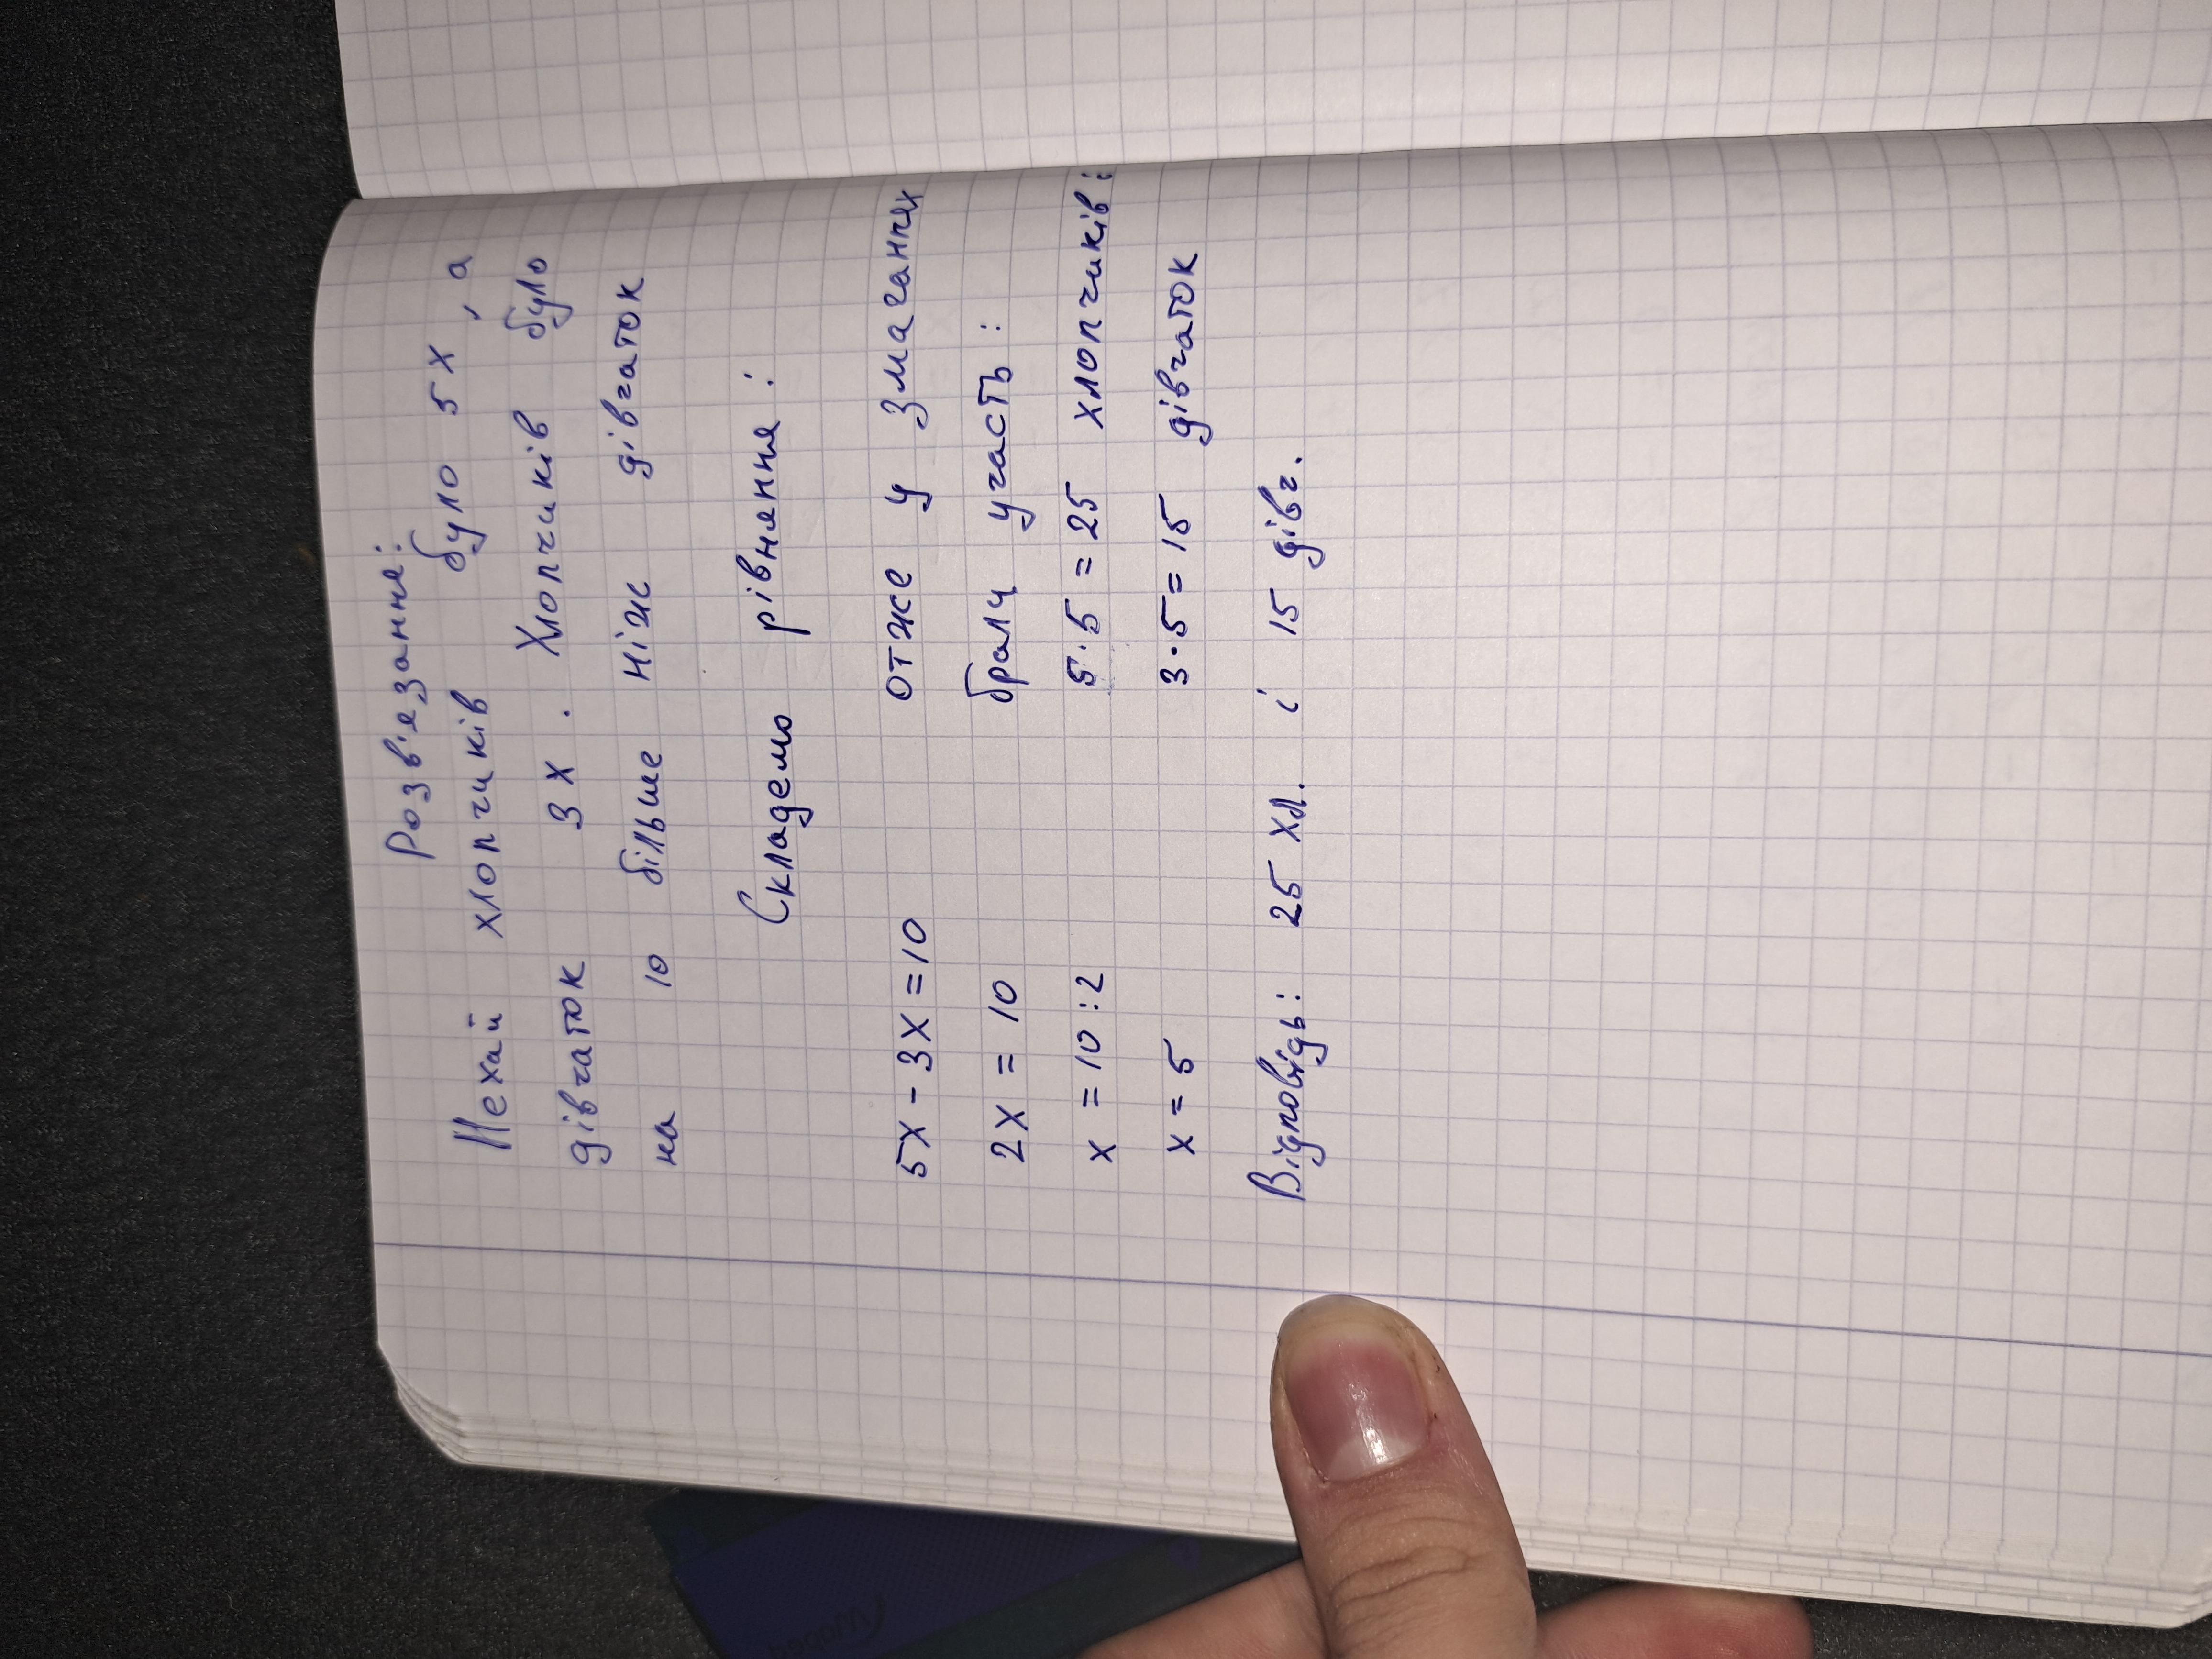 Розв'язання:
Нехай хлопчиків було 5х, а
дівчаток 3х. Хлопчиків було
на 10 більше ніж дівчаток
Складемо рівняння:
5х - 3х = 10 отже у змаганнях
2х = 10 брали участь:
х = 10 : 2 5·5 = 25 хлопчиків і
х = 5 3·5 = 15 дівчаток
Відповідь: 25 хл. і 15 дівч.